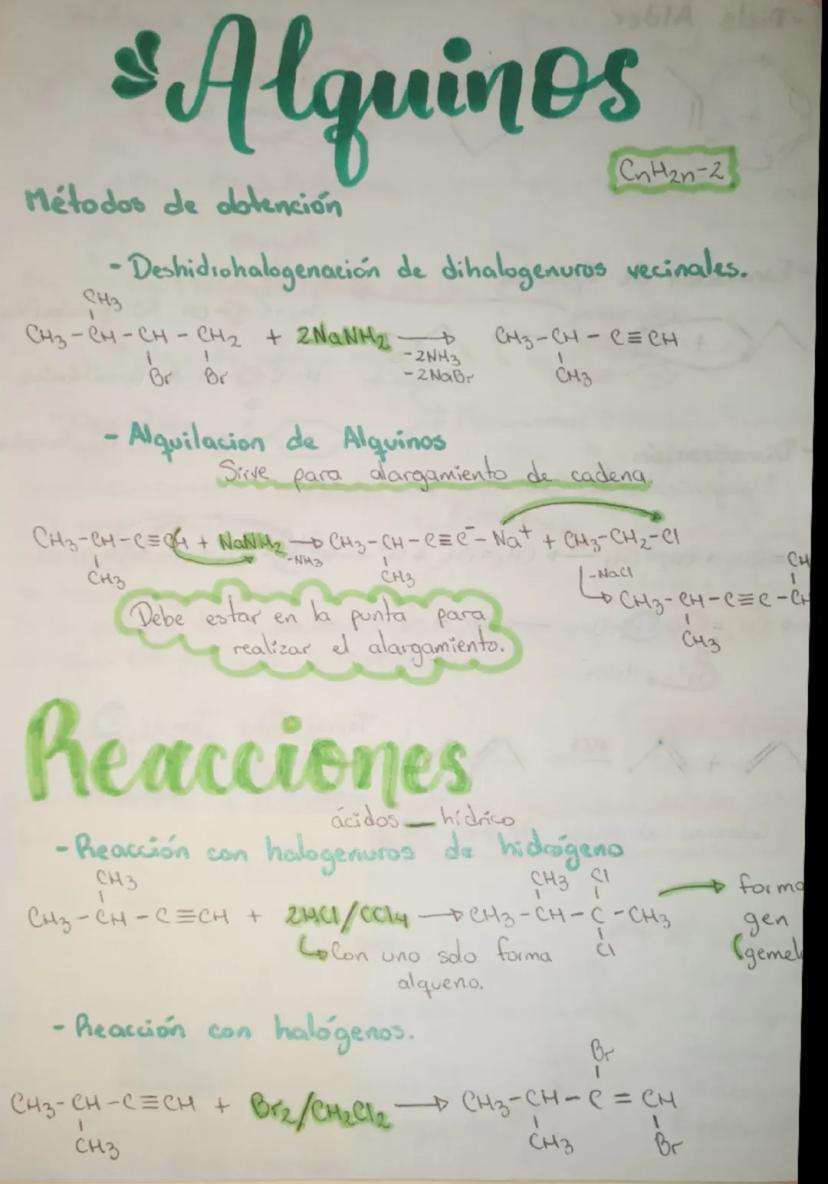 Alquinos
CnH2n-2
Métodos de obtención
- Deshidrohalogenación de dihalogenuros vecinales.
CH3
CH3-CH-CH-CH2 + 2NaNH2 → CH3-CH-C≡CH
-2NH3
Br Br -2NaBr CH3
- Alquilacion de Alquinos
Sirve para alargamiento de cadena
CH3-CH-C≡CH + NaNH2 → CH3-CH-C≡C⁻-Na⁺ + CH3-CH2-Cl
-NH3
CH3 CH3 -NaCl
CH3-CH-C≡C-
CH3
Debe estar en la punta para
realizar el alargamiento.
Reacciones
ácidos hídrico
- Reacción con halogenuros de hidrógeno
CH3 CH3 Cl
CH3-CH-C≡CH + 2HCl/CCl4 → CH3-CH-C-CH3 → forma
gen
Con uno solo forma Cl
alqueno.
- Reacción con halógenos.
Br
CH3-CH-C≡CH + Br2/CH2Cl2 → CH3-CH-C=CH
CH3 CH3 Br